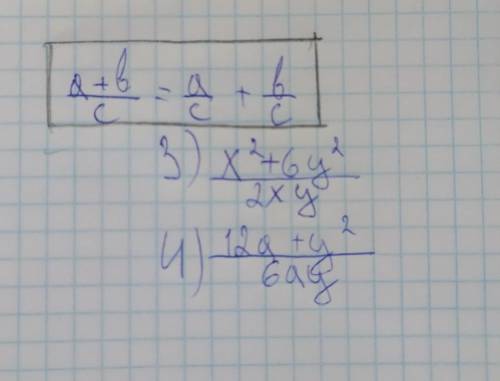 (a+b)/c = a/c + b/c
3) (x²+6y²)/(2xy)
4) (12a+y²)/(6ay)